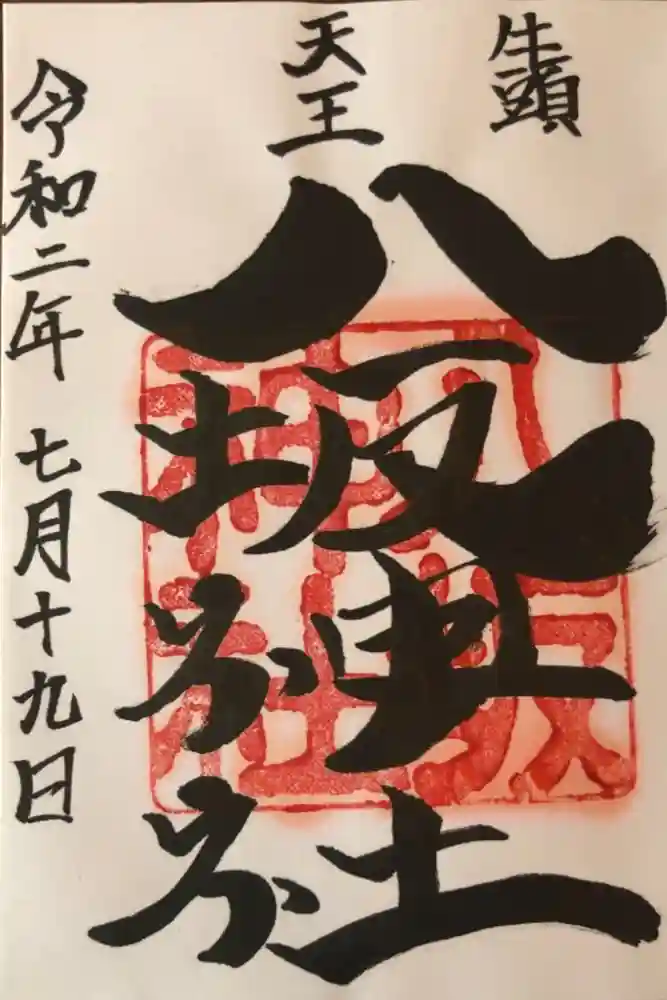 牛頭
天王
八坂神社
令和二年 七月十九日
八坂神社